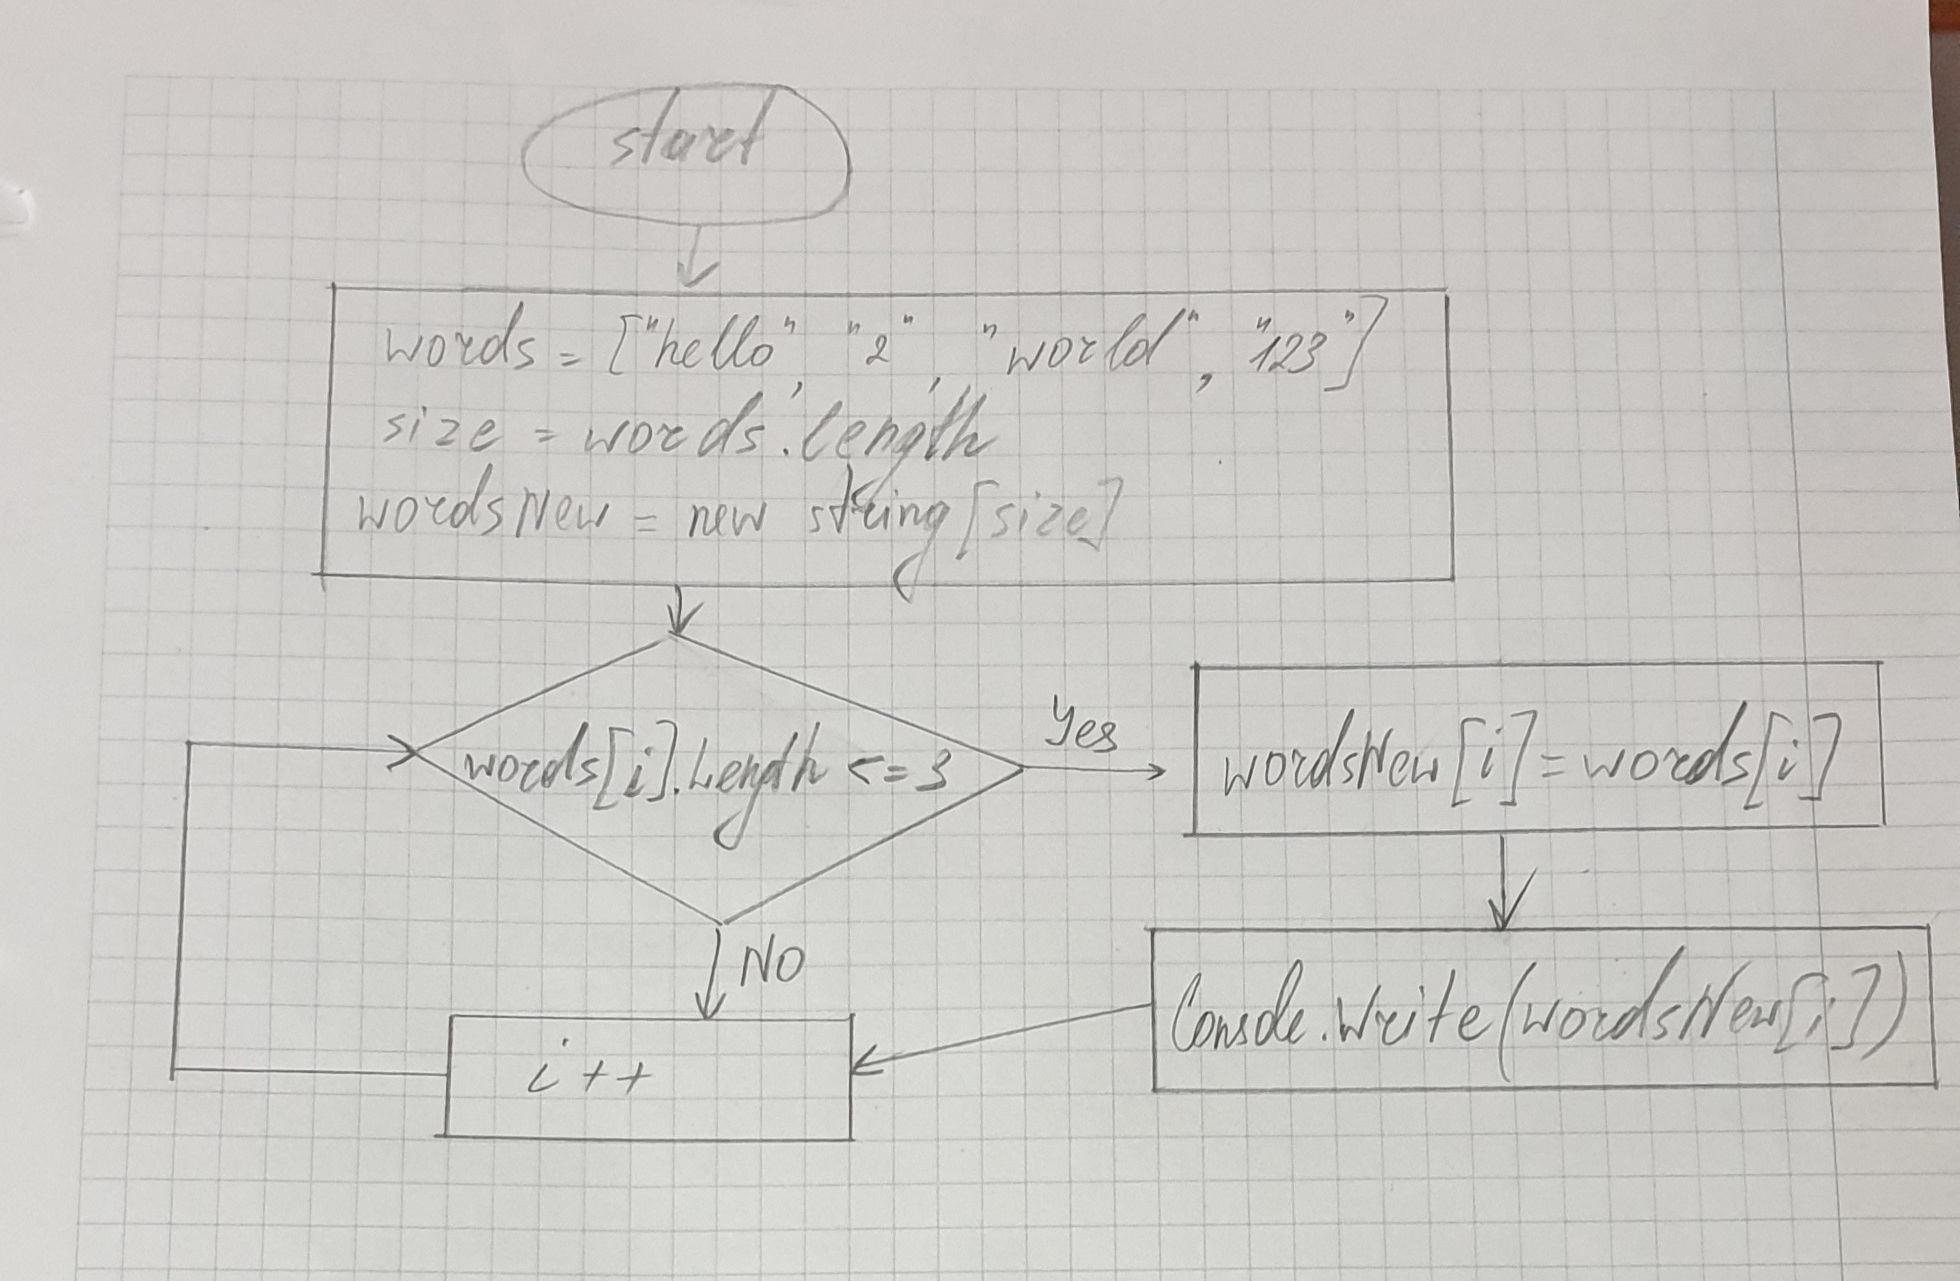 start
words = ["hello", "2", "world", "123"]
size = words.Length
wordsNew = new string[size]
words[i].Length <= 3
Yes
wordsNew[i] = words[i]
NO
Console.Write(wordsNew[i])
i++